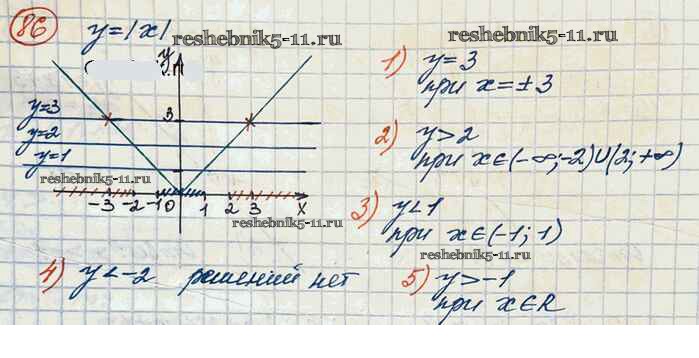 86
y=|x|
reshebnik5-11.ru
y
1) y=3
при x=±3
reshebnik5-11.ru
y=3
3
y=2
y=1
2) y>2
при x∈(-∞;-2)∪(2;+∞)
reshebnik5-11.ru
reshebnik5-11.ru
-3 -2 -1 0 1 2 3 x
reshebnik5-11.ru
3) y<1
при x∈(-1;1)
reshebnik5-11.ru
4) y<-2 решений нет
reshebnik5-11.ru
5) y>-1
при x∈R
reshebnik5-11.ru